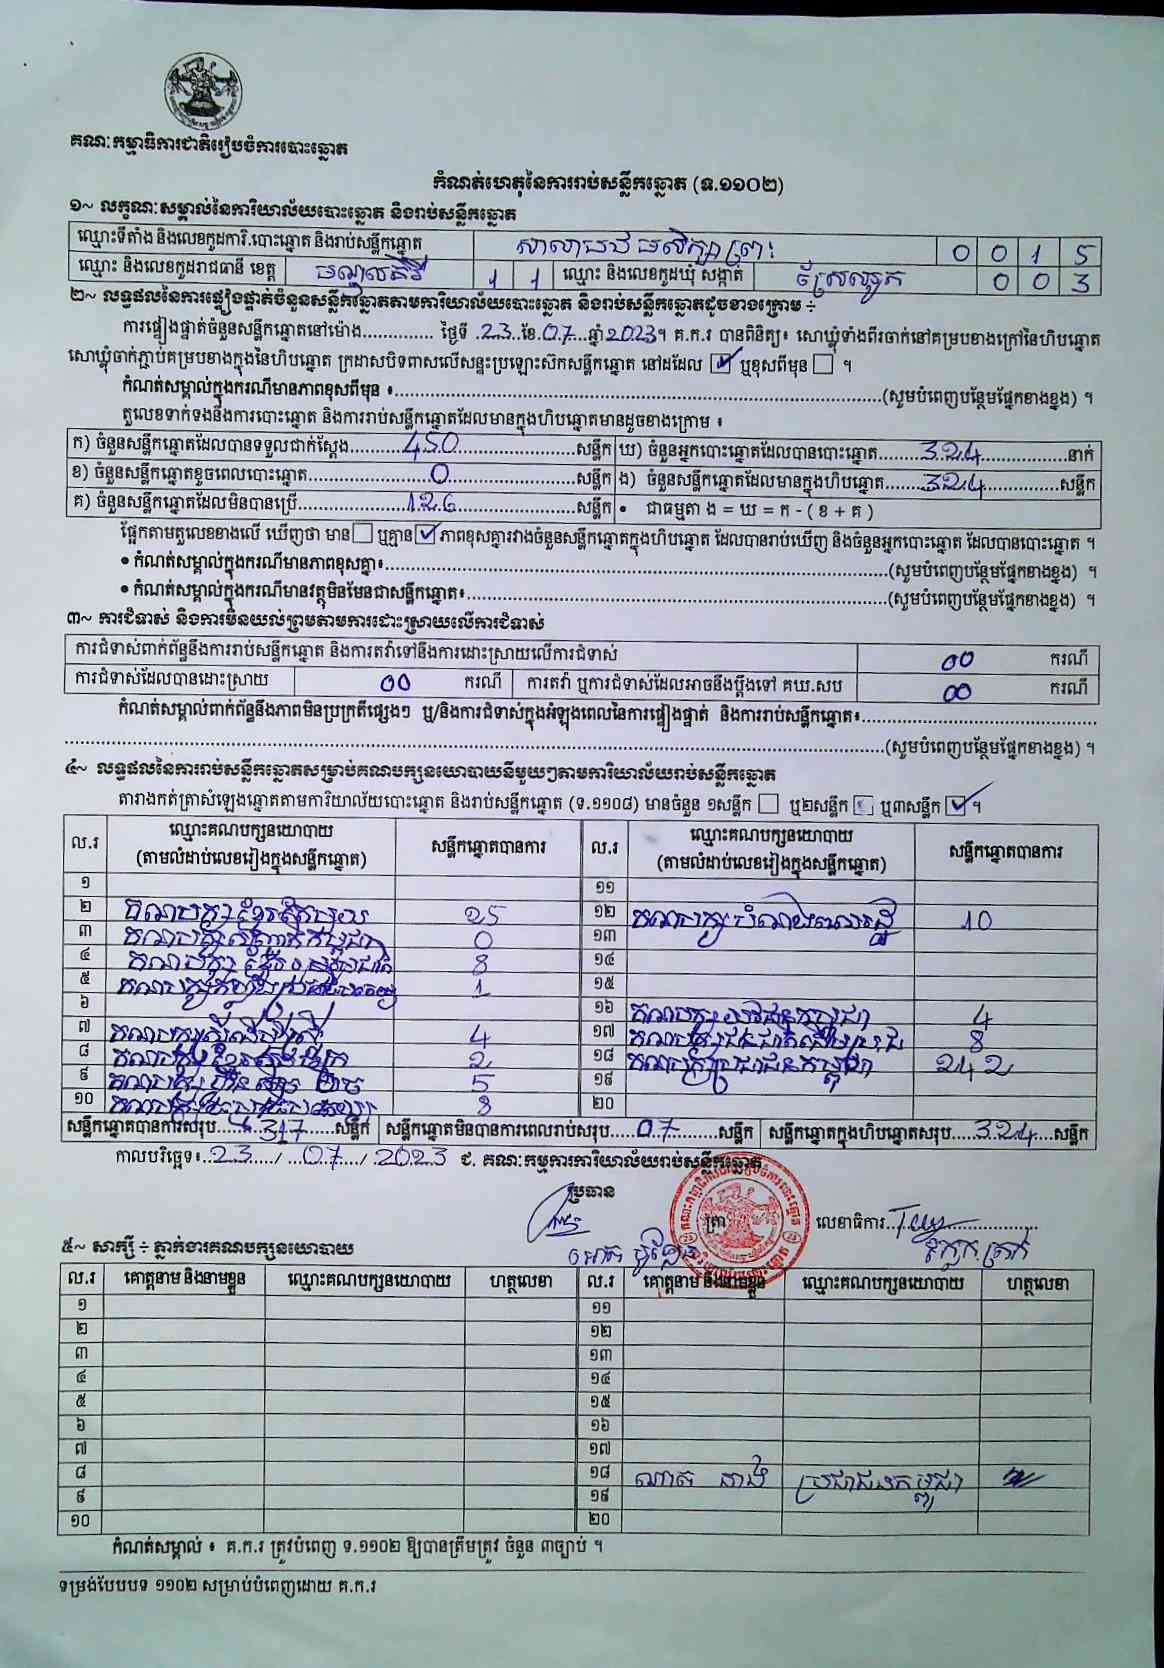 គណៈកម្មាធិការជាតិរៀបចំការបោះឆ្នោត
កំណត់ហេតុនៃការរាប់សន្លឹកឆ្នោត (ទ.១១០២)
១~ លក្ខណៈសម្គាល់នៃការិយាល័យបោះឆ្នោត និងរាប់សន្លឹកឆ្នោត
ឈ្មោះទីតាំង និងលេខកូដការិ.បោះឆ្នោត និងរាប់សន្លឹកឆ្នោត 0 0 1 5
ឈ្មោះ និងលេខកូដរាជធានី ខេត្ត មណ្ឌលគិរី 1 1 ឈ្មោះ និងលេខកូដឃុំ សង្កាត់ 0 0 3
២~ លទ្ធផលនៃការផ្ទៀងផ្ទាត់ចំនួនសន្លឹកឆ្នោតតាមការិយាល័យបោះឆ្នោត និងរាប់សន្លឹកឆ្នោតដូចខាងក្រោម ÷
ការផ្ទៀងផ្ទាត់ចំនួនសន្លឹកឆ្នោតនៅម៉ោង............. ថ្ងៃទី 23 ខែ 07 ឆ្នាំ 2023។ គ.ក.រ បានពិនិត្យ៖ សោឃ្លុំទាំងពីរចាក់នៅគម្របខាងក្រៅនៃហិបឆ្នោត
សោឃ្លុំចាក់ភ្ជាប់គម្របខាងក្នុងនៃហិបឆ្នោត ក្រដាសបិទពាសលើសន្ទះប្រឡោះស៊កសន្លឹកឆ្នោត នៅដដែល ☑ ឬខុសពីមុន ☐ ។
កំណត់សម្គាល់ក្នុងករណីមានភាពខុសពីមុន ៖..........(សូមបំពេញបន្ថែមផ្នែកខាងខ្នង) ។
តួលេខទាក់ទងនឹងការបោះឆ្នោត និងការរាប់សន្លឹកឆ្នោតដែលមានក្នុងហិបឆ្នោតមានដូចខាងក្រោម ៖
ក) ចំនួនសន្លឹកឆ្នោតដែលបានទទួលជាក់ស្តែង 450 សន្លឹក ឃ) ចំនួនអ្នកបោះឆ្នោតដែលបានបោះឆ្នោត 324 នាក់
ខ) ចំនួនសន្លឹកឆ្នោតខូចពេលបោះឆ្នោត 0 សន្លឹក ង) ចំនួនសន្លឹកឆ្នោតដែលមានក្នុងហិបឆ្នោត 324 សន្លឹក
គ) ចំនួនសន្លឹកឆ្នោតដែលមិនបានប្រើ 126 សន្លឹក • ជាធម្មតា ង = ឃ = ក - ( ខ + គ )
ផ្អែកតាមតួលេខខាងលើ ឃើញថា មាន ☐ ឬគ្មាន ☑ ភាពខុសគ្នារវាងចំនួនសន្លឹកឆ្នោតក្នុងហិបឆ្នោត ដែលបានរាប់ឃើញ និងចំនួនអ្នកបោះឆ្នោត ដែលបានបោះឆ្នោត ។
• កំណត់សម្គាល់ក្នុងករណីមានភាពខុសគ្នា៖..........(សូមបំពេញបន្ថែមផ្នែកខាងខ្នង) ។
• កំណត់សម្គាល់ក្នុងករណីមានវត្ថុមិនមែនជាសន្លឹកឆ្នោត៖..........(សូមបំពេញបន្ថែមផ្នែកខាងខ្នង) ។
៣~ ការជំទាស់ និងការមិនយល់ព្រមតាមការដោះស្រាយលើការជំទាស់
ការជំទាស់ពាក់ព័ន្ធនឹងការរាប់សន្លឹកឆ្នោត និងការតវ៉ាទៅនឹងការដោះស្រាយលើការជំទាស់ 00 ករណី
ការជំទាស់ដែលបានដោះស្រាយ 00 ករណី ការតវ៉ា ឬការជំទាស់ដែលអាចនឹងប្តឹងទៅ គឃ.សប 00 ករណី
កំណត់សម្គាល់ពាក់ព័ន្ធនឹងភាពមិនប្រក្រតីផ្សេងៗ ឬ/និងការជំទាស់ក្នុងអំឡុងពេលនៃការផ្ទៀងផ្ទាត់ និងការរាប់សន្លឹកឆ្នោត៖..........
..........(សូមបំពេញបន្ថែមផ្នែកខាងខ្នង) ។
៤~ លទ្ធផលនៃការរាប់សន្លឹកឆ្នោតសម្រាប់គណបក្សនយោបាយនីមួយៗតាមការិយាល័យរាប់សន្លឹកឆ្នោត
តារាងកត់ត្រាសំឡេងឆ្នោតតាមការិយាល័យបោះឆ្នោត និងរាប់សន្លឹកឆ្នោត (ទ.១១០៨) មានចំនួន ១សន្លឹក ☐ ឬ២សន្លឹក ☐ ឬ៣សន្លឹក ☑ ។
ល.រ ឈ្មោះគណបក្សនយោបាយ (តាមលំដាប់លេខរៀងក្នុងសន្លឹកឆ្នោត) សន្លឹកឆ្នោតបានការ ល.រ ឈ្មោះគណបក្សនយោបាយ (តាមលំដាប់លេខរៀងក្នុងសន្លឹកឆ្នោត) សន្លឹកឆ្នោតបានការ
១ ១១
២ គណបក្ស ខ្មែរតែមួយ 25 ១២ គណបក្ស 10
៣ គណបក្ស កម្ពុជា 0 ១៣
៤ គណបក្ស ខ្មែរ 8 ១៤
៥ គណបក្ស 1 ១៥
៦ ១៦ គណបក្ស កម្ពុជា 4
៧ គណបក្ស 4 ១៧ គណបក្ស 8
៨ គណបក្ស ខ្មែរ 2 ១៨ គណបក្សប្រជាជនកម្ពុជា 242
៩ គណបក្ស 5 ១៩
១០ គណបក្ស 8 ២០
សន្លឹកឆ្នោតបានការសរុប 317 សន្លឹក សន្លឹកឆ្នោតមិនបានការពេលរាប់សរុប 07 សន្លឹក សន្លឹកឆ្នោតក្នុងហិបឆ្នោតសរុប 324 សន្លឹក
កាលបរិច្ឆេទ៖ 23 / 07 / 2023 ជ. គណៈកម្មការការិយាល័យរាប់សន្លឹកឆ្នោត
ប្រធាន ត្រា លេខាធិការ
៥~ សាក្សី ÷ ភ្នាក់ងារគណបក្សនយោបាយ
ល.រ គោត្តនាម និងនាមខ្លួន ឈ្មោះគណបក្សនយោបាយ ហត្ថលេខា ល.រ គោត្តនាម និងនាមខ្លួន ឈ្មោះគណបក្សនយោបាយ ហត្ថលេខា
១ ១១
២ ១២
៣ ១៣
៤ ១៤
៥ ១៥
៦ ១៦
៧ ១៧
៨ ១៨ ប្រជាជនកម្ពុជា
៩ ១៩
១០ ២០
កំណត់សម្គាល់ ៖ គ.ក.រ ត្រូវបំពេញ ទ.១១០២ ឱ្យបានត្រឹមត្រូវ ចំនួន ៣ច្បាប់ ។
ទម្រង់បែបបទ ១១០២ សម្រាប់បំពេញដោយ គ.ក.រ